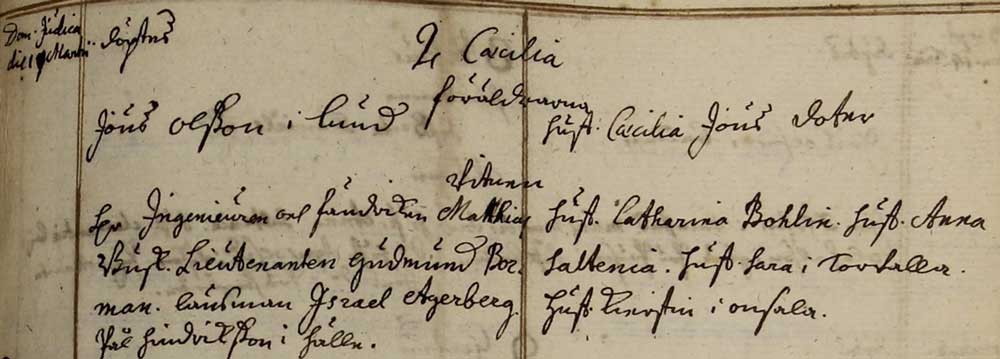 Dom. Judica
die 19 Martii
döptes
Cæcilia
föräldrarna
Jöns Olsson i Lund
hust. Cæcilia Jöns doter
Vitnen
Hr Ingenieuren och fändricken Matthias
Busk. Lieutenanten Gudmund Bor-
man. länsman Israel Agerberg.
Pål Hindricksson i Hälle.
hust. Catharina Bohlin. hust. Anna
Saltenia. hust. Sara i Torsalla.
hust. Kierstin i Onsala.